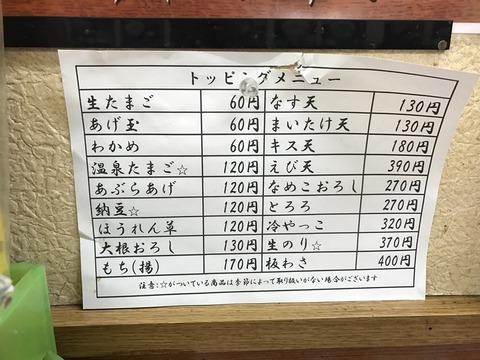 トッピングメニュー
生たまご 60円 なす天 130円
あげ玉 60円 まいたけ天 130円
わかめ 60円 キス天 180円
温泉たまご☆ 120円 えび天 390円
あぶらあげ 120円 なめこおろし 270円
納豆☆ 120円 とろろ 270円
ほうれん草 120円 冷やっこ 320円
大根おろし 130円 生のり☆ 370円
もち(揚) 170円 板わさ 400円
注意:☆がついている商品は季節によって取り扱いがない場合がございます